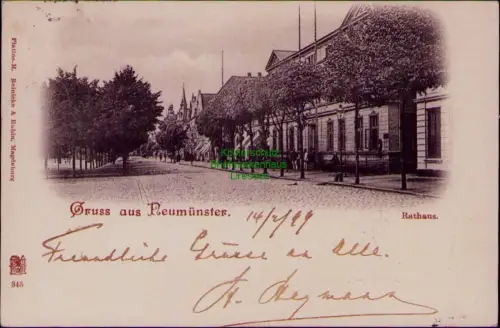 Gruss aus Neumünster.
14/2/99
Rathaus.
Freundliche Grüsse an Alle.
H. Heymann
Plattos-M. Reinicke & Rubin, Magdeburg
345